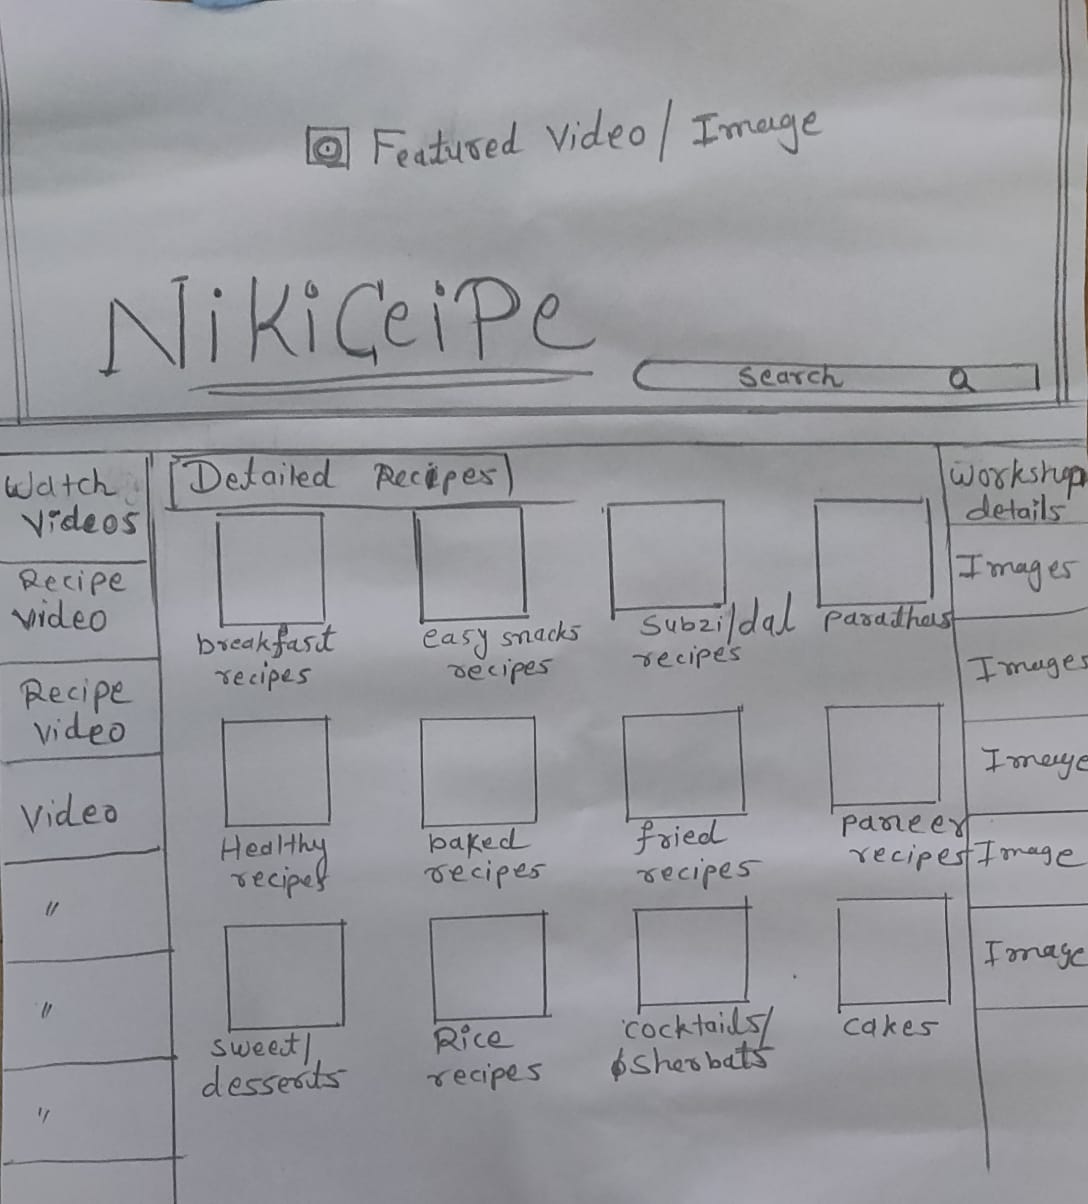 Featured Video/Image
NiKiCeiPe
Search
Watch
Videos
Recipe
video
Recipe
video
Video
"
"
"
Detailed Recipes
breakfast
recipes
easy snacks
recipes
Subzi/dal
recipes
parathas
Healthy
recipes
baked
recipes
fried
recipes
paneer
recipes
sweet/
desserts
Rice
recipes
cocktails/
sherbats
cakes
Workshop
details
Images
Images
Image
Image
Image